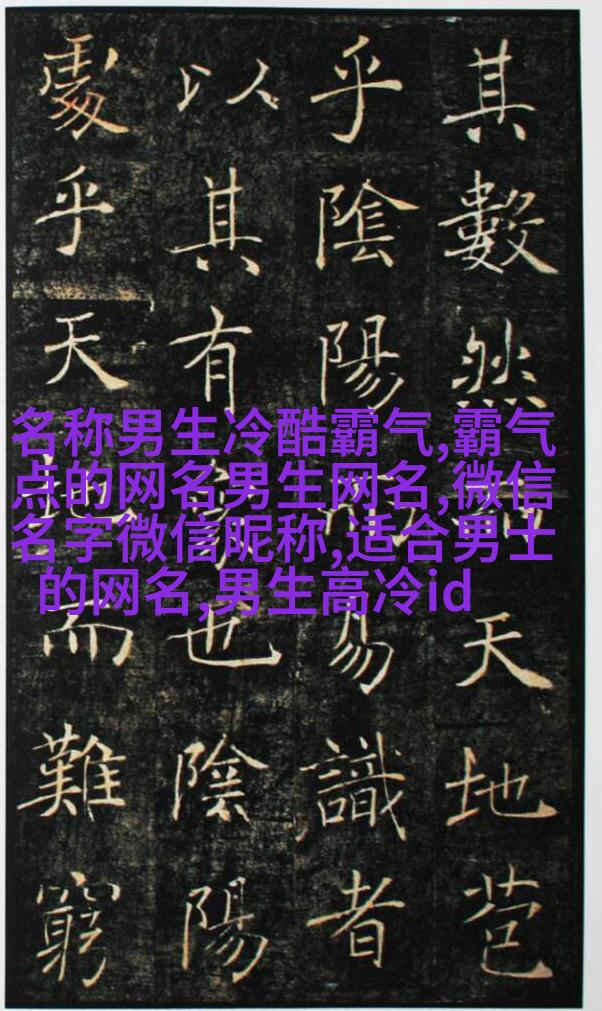 其數然天地苞
乎陰陽易識者
以其有象也陰陽
處乎天地而難窮
名称男生冷酷霸气,霸气
点的网名男生网名,微信
名字微信昵称,适合男士
的网名,男生高冷id